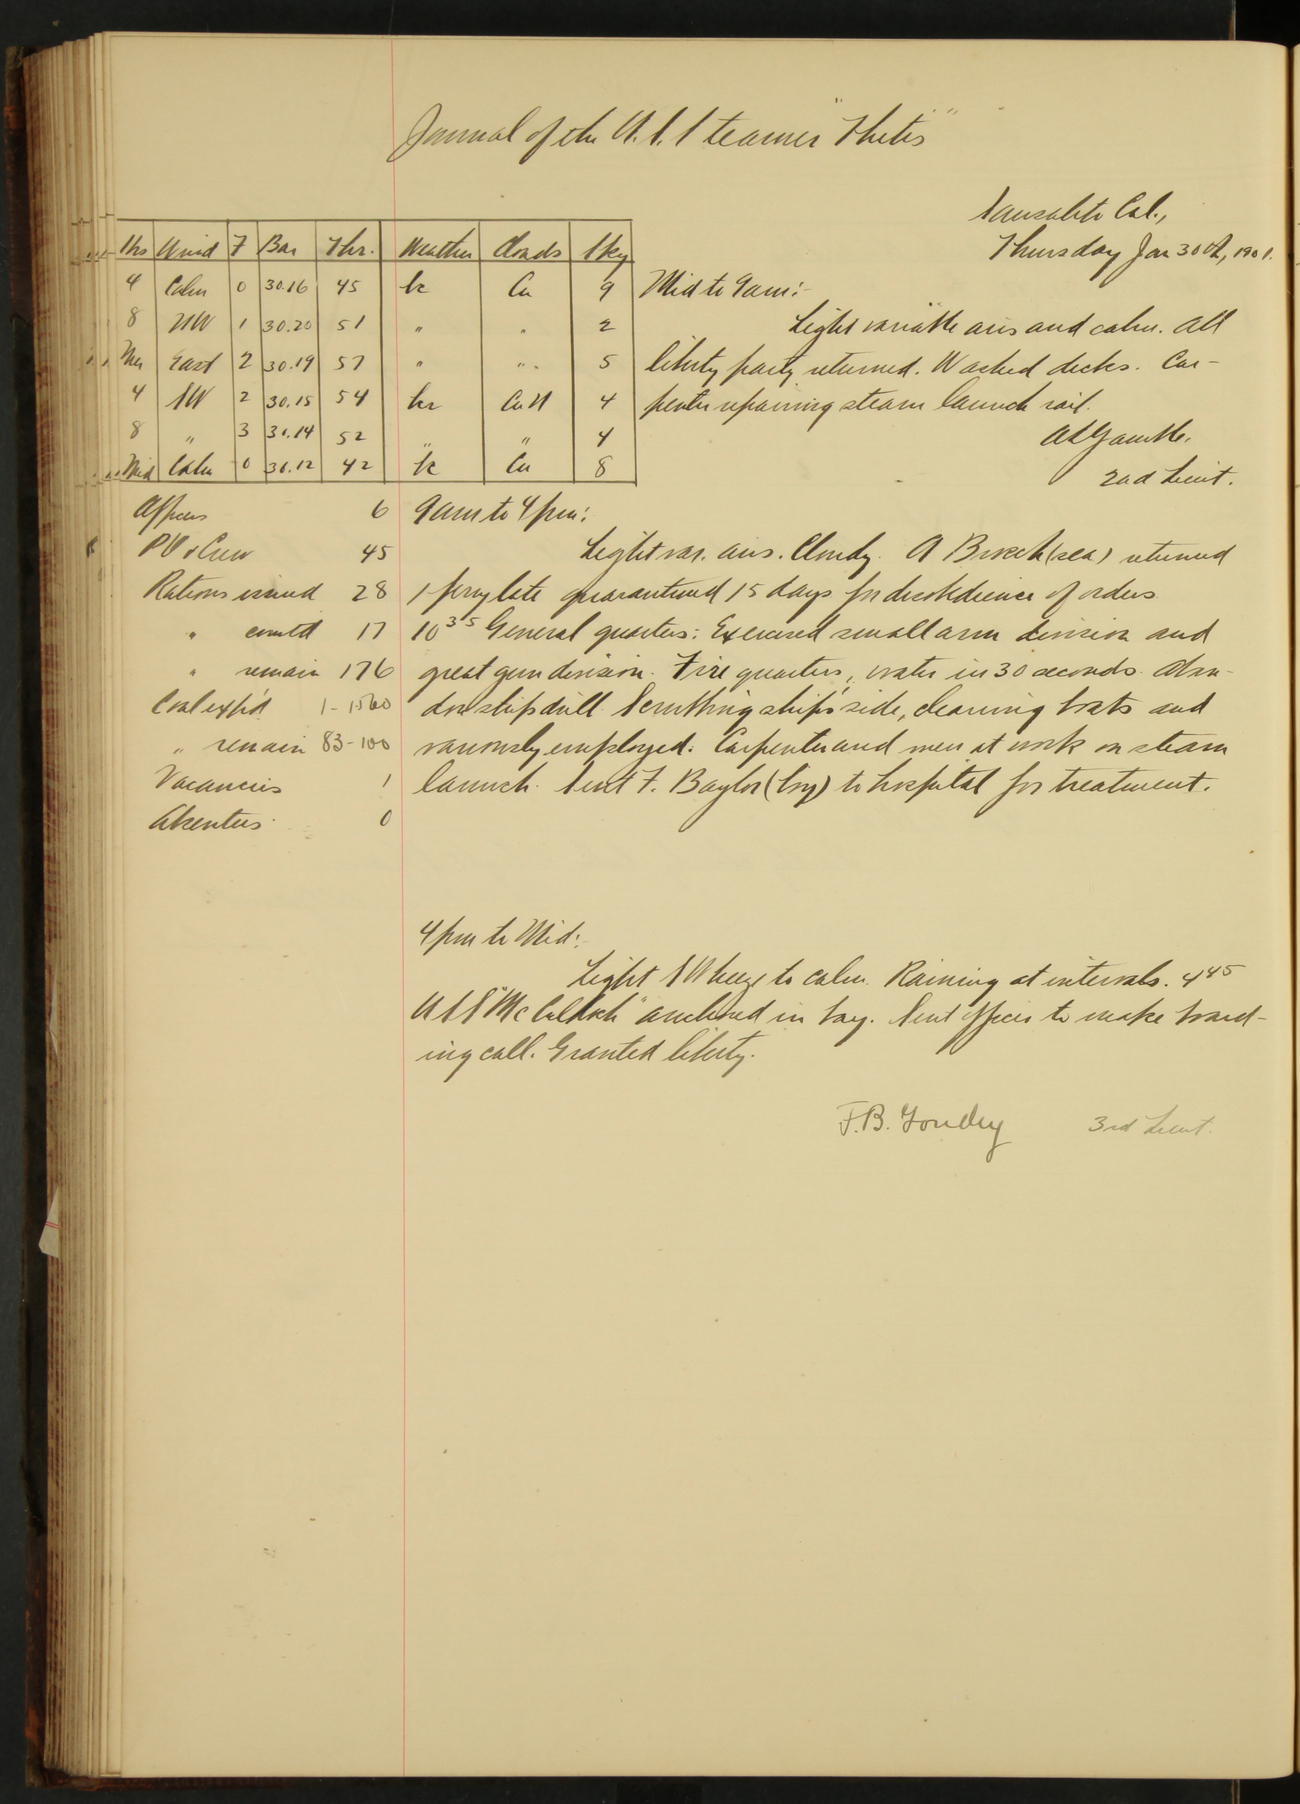 Journal of the U.S. Steamer "Thetis"
Sausalito Cal.,
Thursday Jan 30th, 1901.
Hrs Wind F Bar Thr. Weather Clouds Sky
4 Calm 0 30.16 45 bc Cu 9
8 NW 1 30.20 51 " " 2
Mer East 2 30.19 57 " " 5
4 SW 2 30.15 54 CuN 4
8 " 3 30.14 52 " " 4
Mid Calm 0 30.12 42 bc Cu 8
Mid to 9am:-
Light variable airs and calm. All
liberty party returned. Washed decks. Car-
penter repairing steam launch rail.
2nd Lieut.
Officers 6
PO & Crew 45
Rations issued 28
" comtd 17
" remain 176
Coal exp'd 1-1560
" remain 83-100
Vacancies 1
Absentees 0
9am to 4pm:
Light var. airs. Cloudy. A (sea) returned
quarantined 15 days for disobedience of orders
10 35 General quarters: Exercised small arm division and
great gun division. Fire quarters, water in 30 seconds. Aban-
don ship drill. Scrubbing ship's side, cleaning boats and
variously employed. Carpenter and men at work on steam
launch. Sent F. Baylor (boy) to hospital for treatment.
4pm to Mid:
Light SW breeze to calm. Raining at intervals. 4 45
USS "McCulloch" anchored in bay. Sent officer to make board-
ing call. Granted liberty.
3rd Lieut.